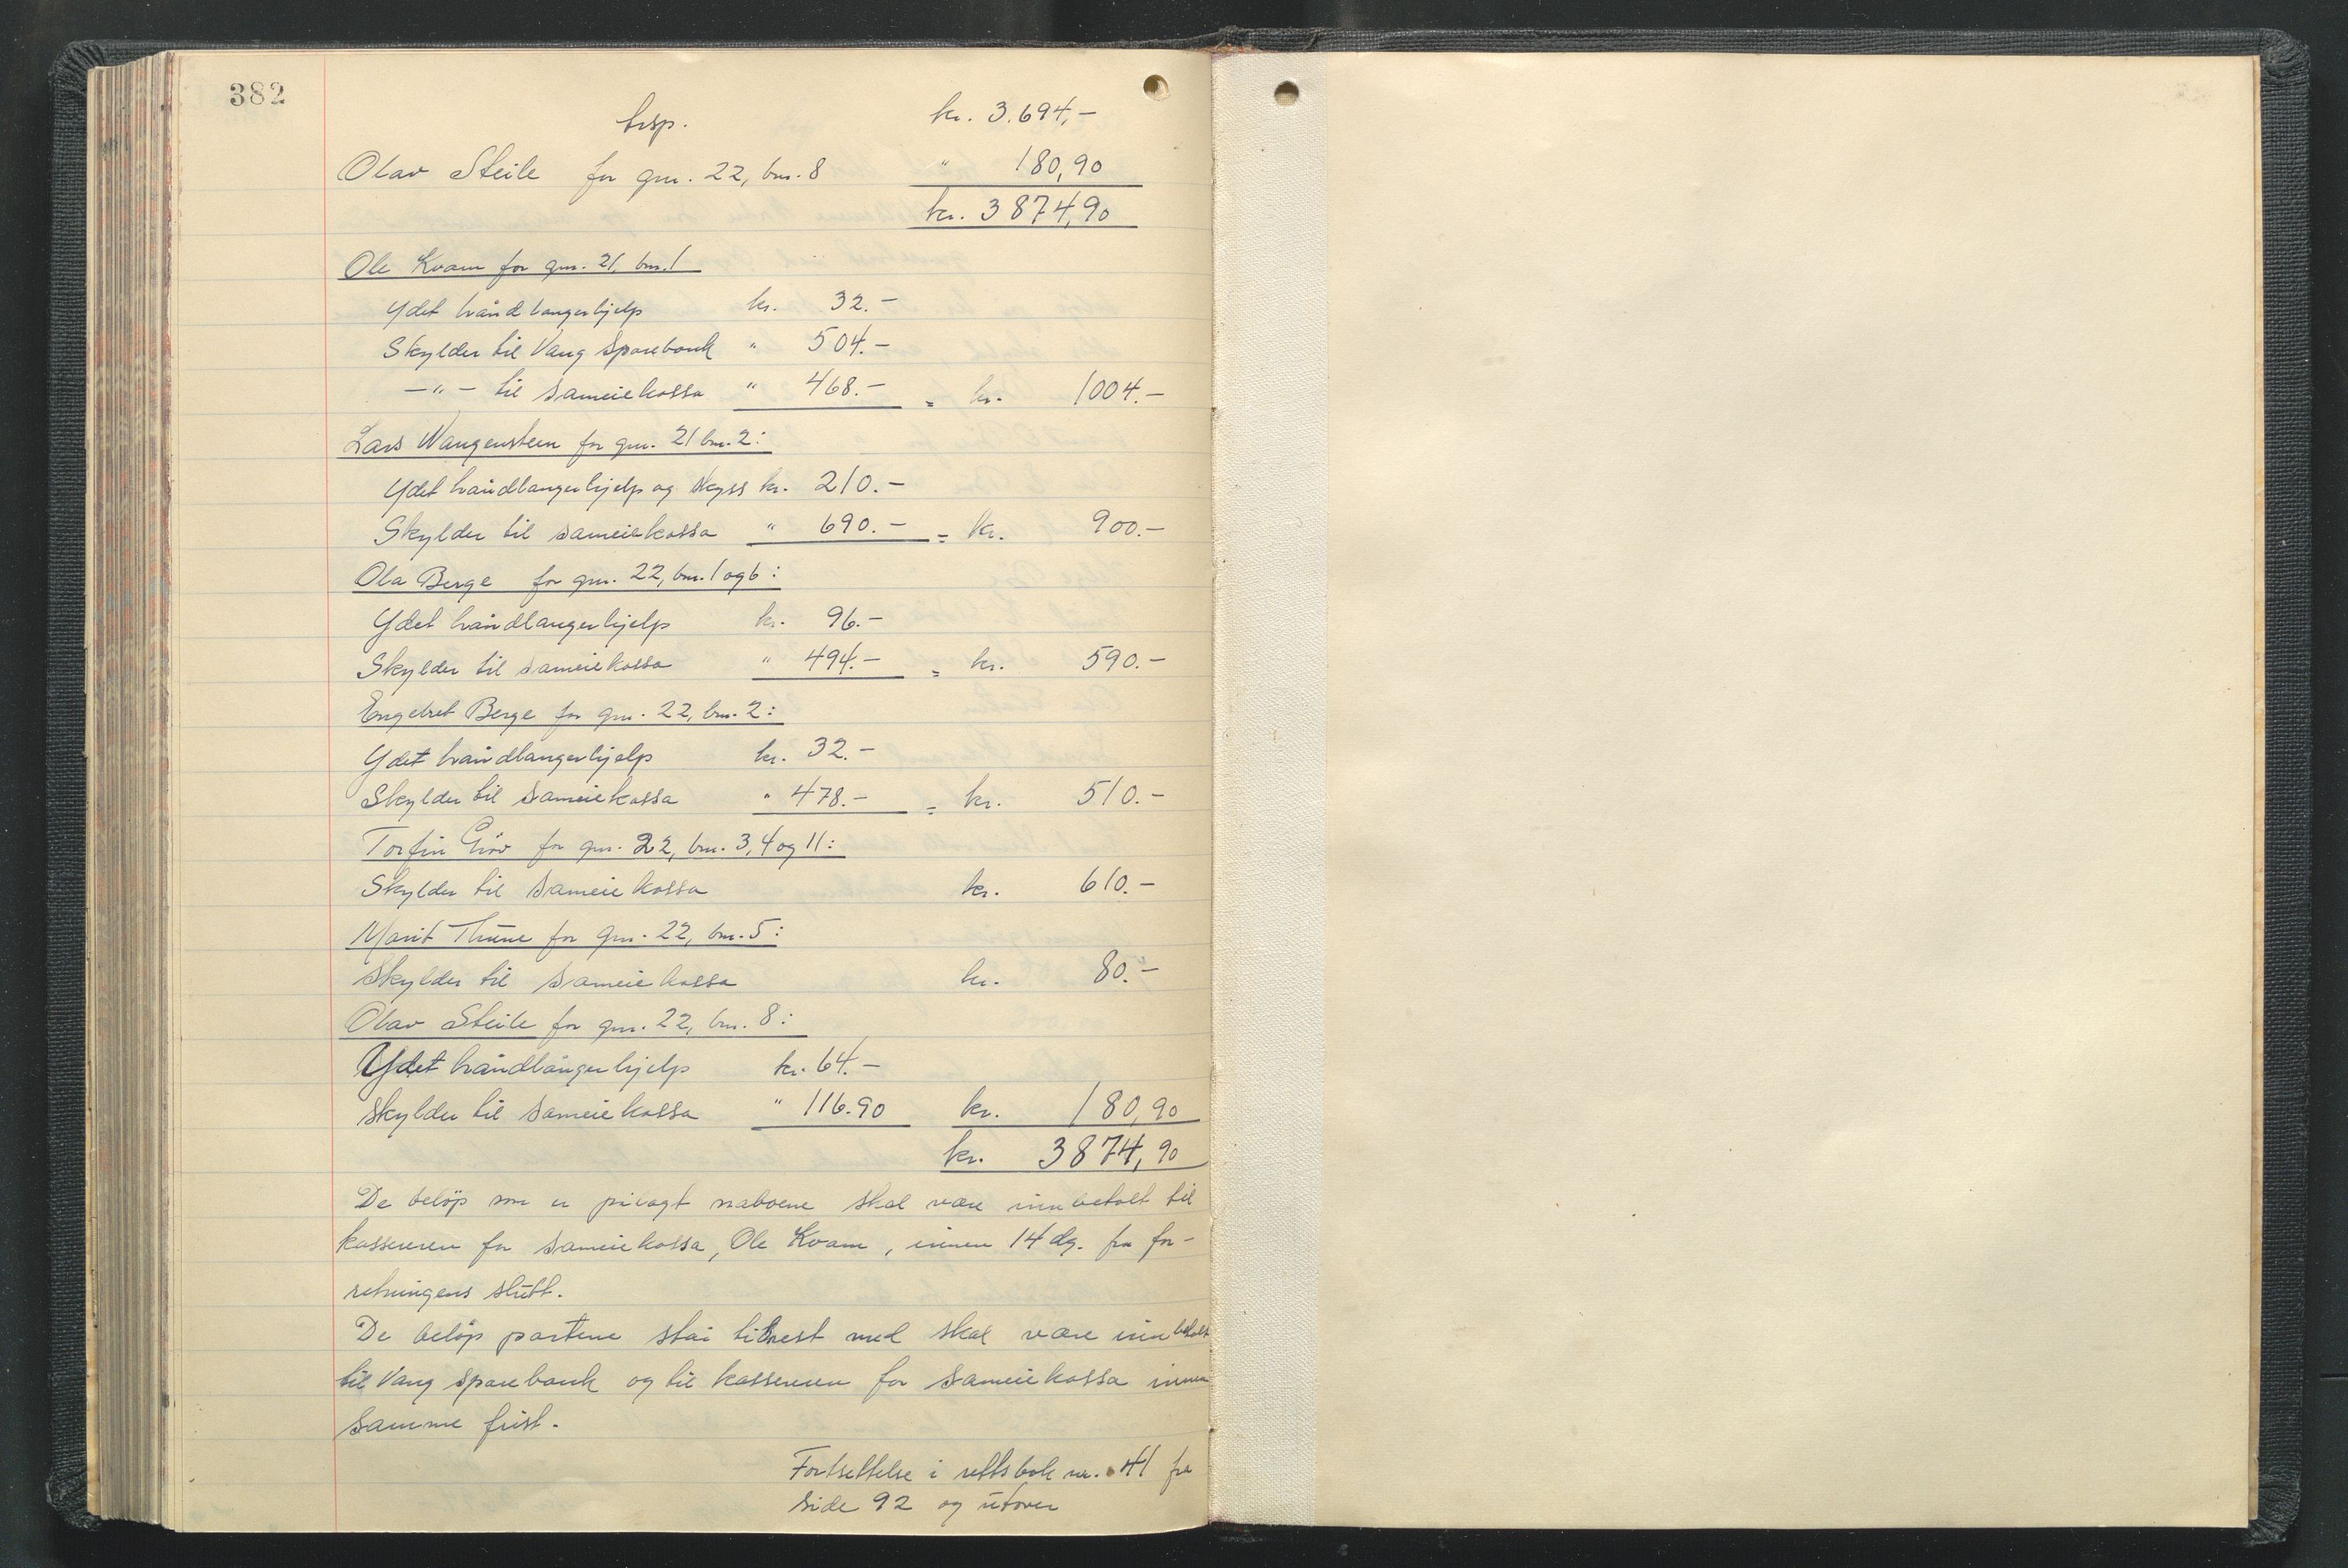 382
trsp. kr. 3.694,-
Olav Steile for gnr. 22, bnr. 8 " 180,90
kr. 3874,90
Ole Kvam for gnr. 21, bnr. 1
Ydet håndlangerhjelp kr. 32.-
Skylder til Vang Sparebank " 504.-
-"- til sameiekassa " 468.- = kr. 1004.-
Lars Wangensteen for gnr. 21 bnr. 2:
Ydet håndlangerhjelp og skyss kr. 210.-
Skylder til sameiekassa " 690.- = kr. 900.-
Ola Berge for gnr. 22, bnr. 1 og 6:
Ydet håndlangerhjelp kr. 96.-
Skylder til sameiekassa " 494.- = kr. 590.-
Engebret Berge for gnr. 22, bnr. 2:
Ydet håndlangerhjelp kr. 32.-
Skylder til sameiekassa " 478.- = kr. 510.-
Torfin for gnr. 22, bnr. 3, 4 og 11:
Skylder til sameiekassa kr. 610.-
Marit Thune for gnr. 22, bnr. 5:
Skylder til sameiekassa kr. 80.-
Olav Steile for gnr. 22, bnr. 8:
Ydet håndlangerhjelp kr. 64.-
Skylder til sameiekassa " 116.90 kr. 180,90
kr. 3874,90
De beløp som er pålagt naboene skal være innbetalt til
kassereren for sameiekassa, Ole Kvam, innen 14 dg. fra for-
retningens slutt.
De beløp partene står til rest med skal være innbetalt
til Vang sparebank og til kassereren for sameiekassa innen
samme frist.
Fortsettelse i rettsbok nr. 41 fra
side 92 og utover